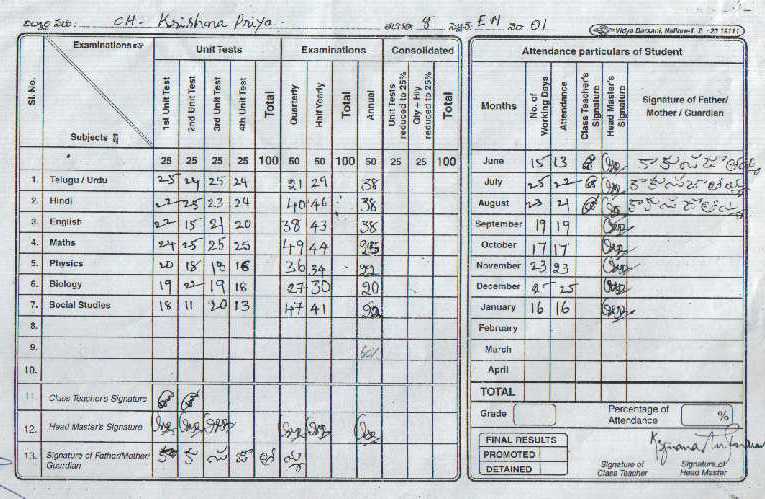 CH. Krishna Priya. 8 EM 01
Vidya Darsani, Nellore
Examinations Unit Tests Examinations Consolidated
Sl. No. Subjects 1st Unit Test 2nd Unit Test 3rd Unit Test 4th Unit Test Total Quarterly Half Yearly Total Annual Unit Tests reduced to 25% Qly + H/y reduced to 25% Total
25 25 25 25 100 50 50 100 50 25 25 100
1. Telugu / Urdu 25 24 25 24 21 29 38
2. Hindi 25 23 24 40 46 38
3. English 22 15 21 20 38 43 38
4. Maths 24 25 25 25 49 44
5. Physics 20 18 19 16 36 34 22
6. Biology 19 22 19 18 27 30 20
7. Social Studies 18 11 20 13 47 41
8.
9.
10.
11. Class Teacher's Signature
12. Head Master's Signature
13. Signature of Father/Mother/ Guardian
Attendance particulars of Student
Months No. of Working Days Attendance Class Teacher's Signature Head Master's Signature Signature of Father/ Mother / Guardian
June 15 13
July 25 22
August 23 21
September 19 19
October 17 17
November 23 23
December 25 25
January 16 16
February
March
April
TOTAL
Grade Percentage of Attendance %
FINAL RESULTS
PROMOTED
DETAINED
Signature of Class Teacher Signature of Head Master